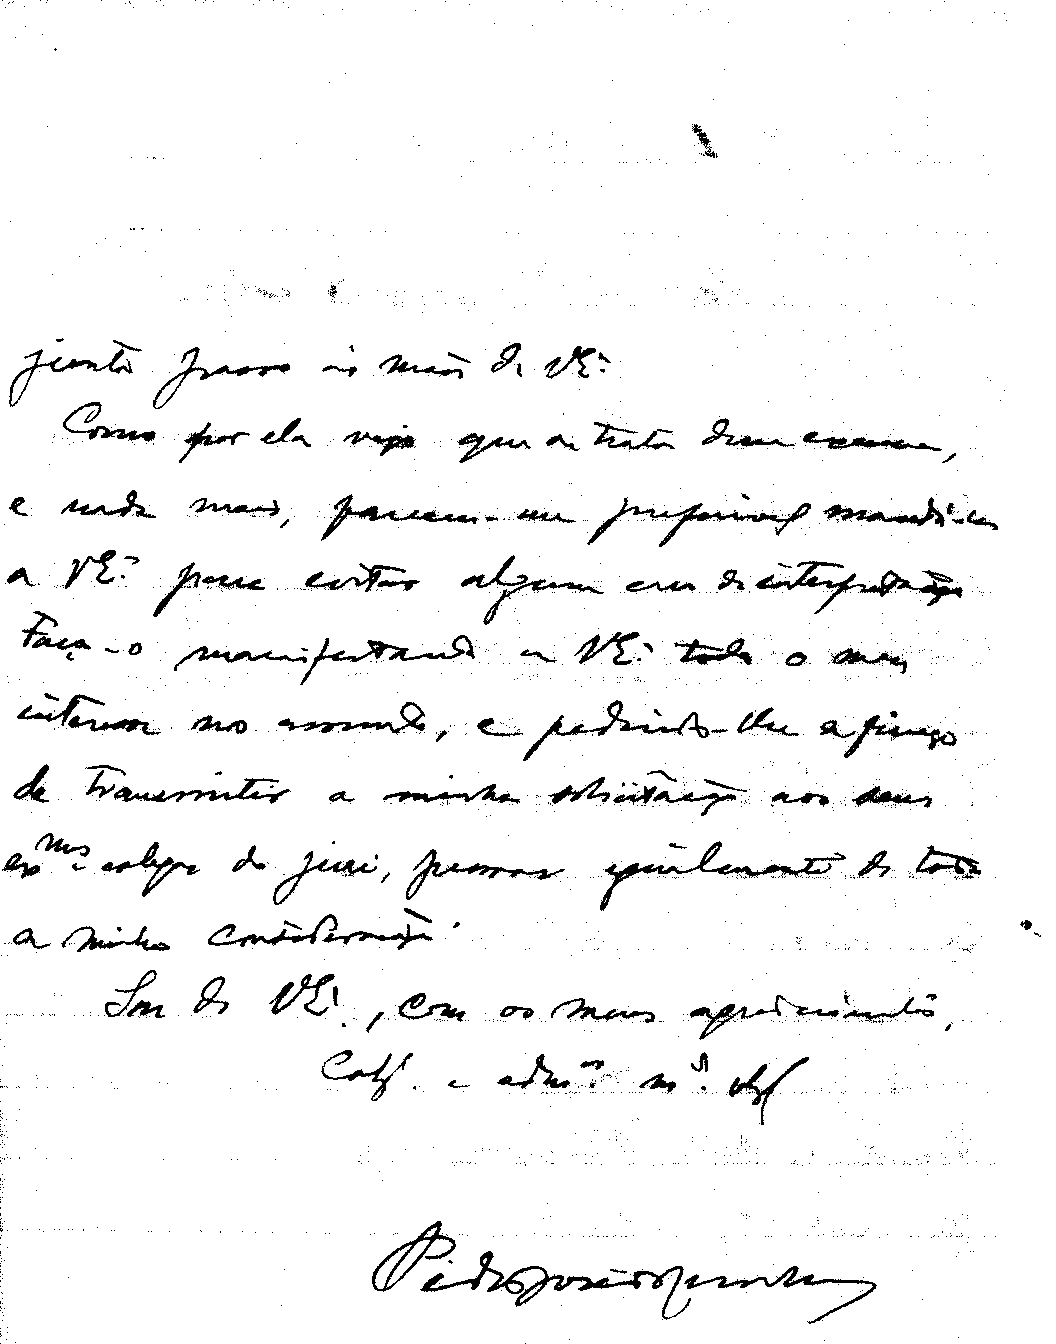 junto passo às mãos de V.Ex.ª
Como por ela vejo que se trata dum exame,
e nada mais, pareceu-me preferivel mandá-la
a V.Ex.ª para evitar algum erro de interpretação
Faço-o manifestando a V.Ex.ª todo o meu
interesse no assunto, e pedindo-lhe a fineza
de transmitir a minha solicitação aos seus
ex.mos colegas do juri, pessoas igualmente de toda
a minha consideração.
Sou de V.Ex.ª, com os meus agradecimentos,
Colg. e adm.or m.to
Pedro José da Cunha